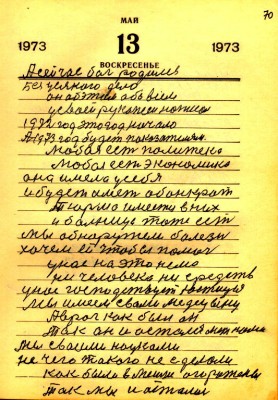 70
МАЙ
1973 13 1973
ВОСКРЕСЕНЬЕ
А сейчас бог родился
без усякого дело
он обэтом обовсем
усвоей рукописи написал
1972 год этогод начало
А 1973 год будет показателям
Любая есть политика
Любая есть экономика
она имела усебя
и будет иметь
Тюрма имеет в них
и болница тоже есть
мы обнаружем болезн
хочем ей чтобы помоч
унас на это нема
ни человека ни средств
унас господствует юстиция
мы имеем свою медецыну
А враг как был он
так он и остался
мы своими науками
не чего такого не сделали
как были в
так мы и остались